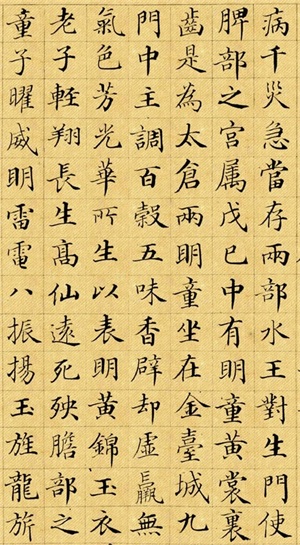 病千災急當存兩部水王對生門使
脾部之宮属戊己中有明童黃裳裏
齒是為太倉兩明童坐在金臺城九
門中主調百穀五味香辟却虛羸無
氣色芳光華所生以表明黃錦玉衣
老子輕翔長生髙仙遠死殃膽部之
童子曜威明雷電八振揚玉旌龍旂